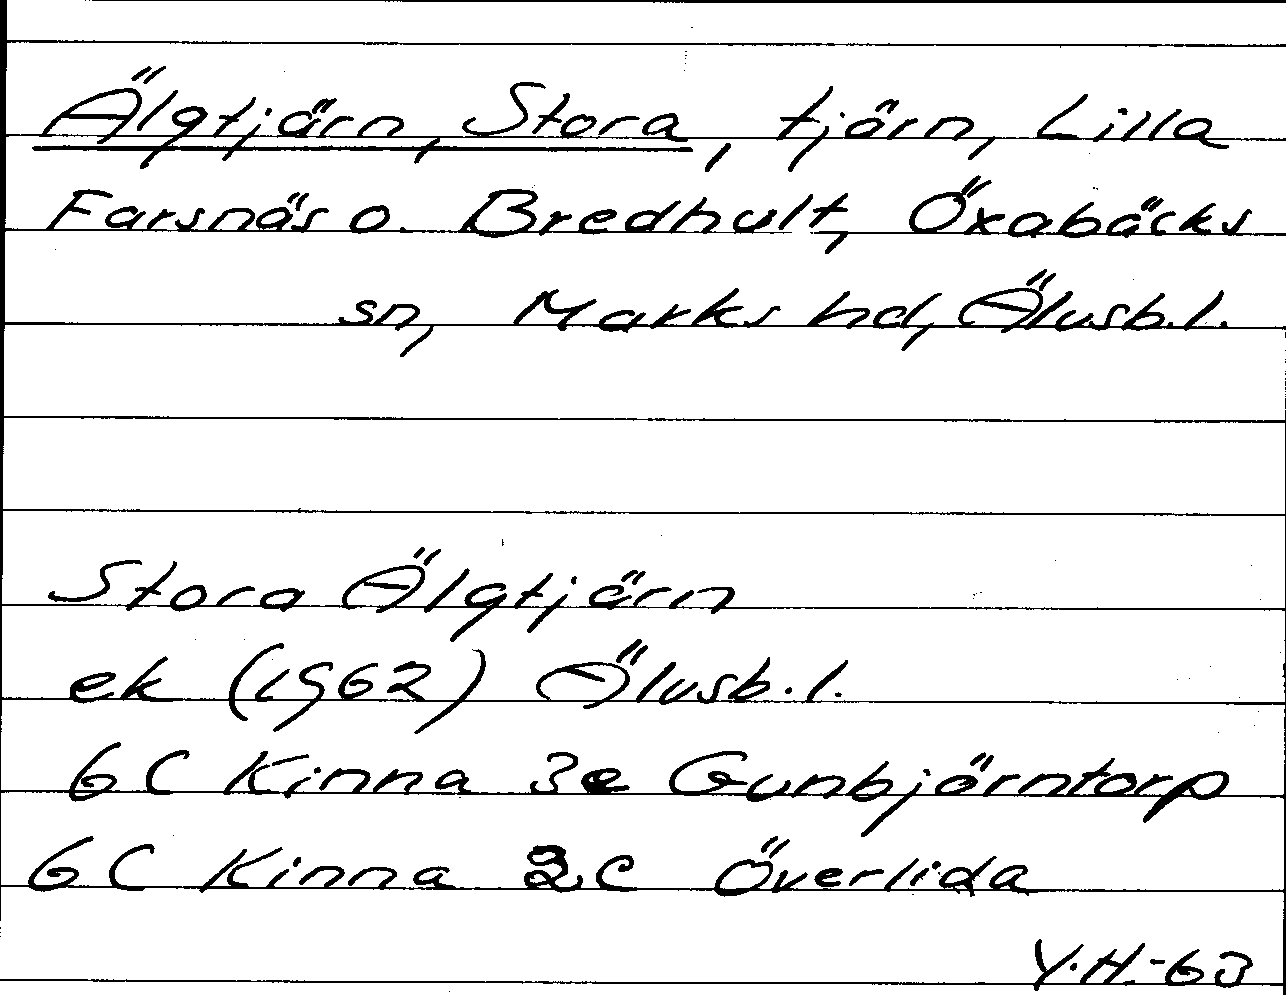 Älgtjärn, Stora, tjärn, Lilla
Farsnäs o. Bredhult, Öxabäcks
sn, Marks hd, Älvsb.l.
Stora Älgtjärn
ek (1962) Älvsb.l.
6C Kinna 3e Gunbjörntorp
6C Kinna 2c Överlida
Y.H.-63